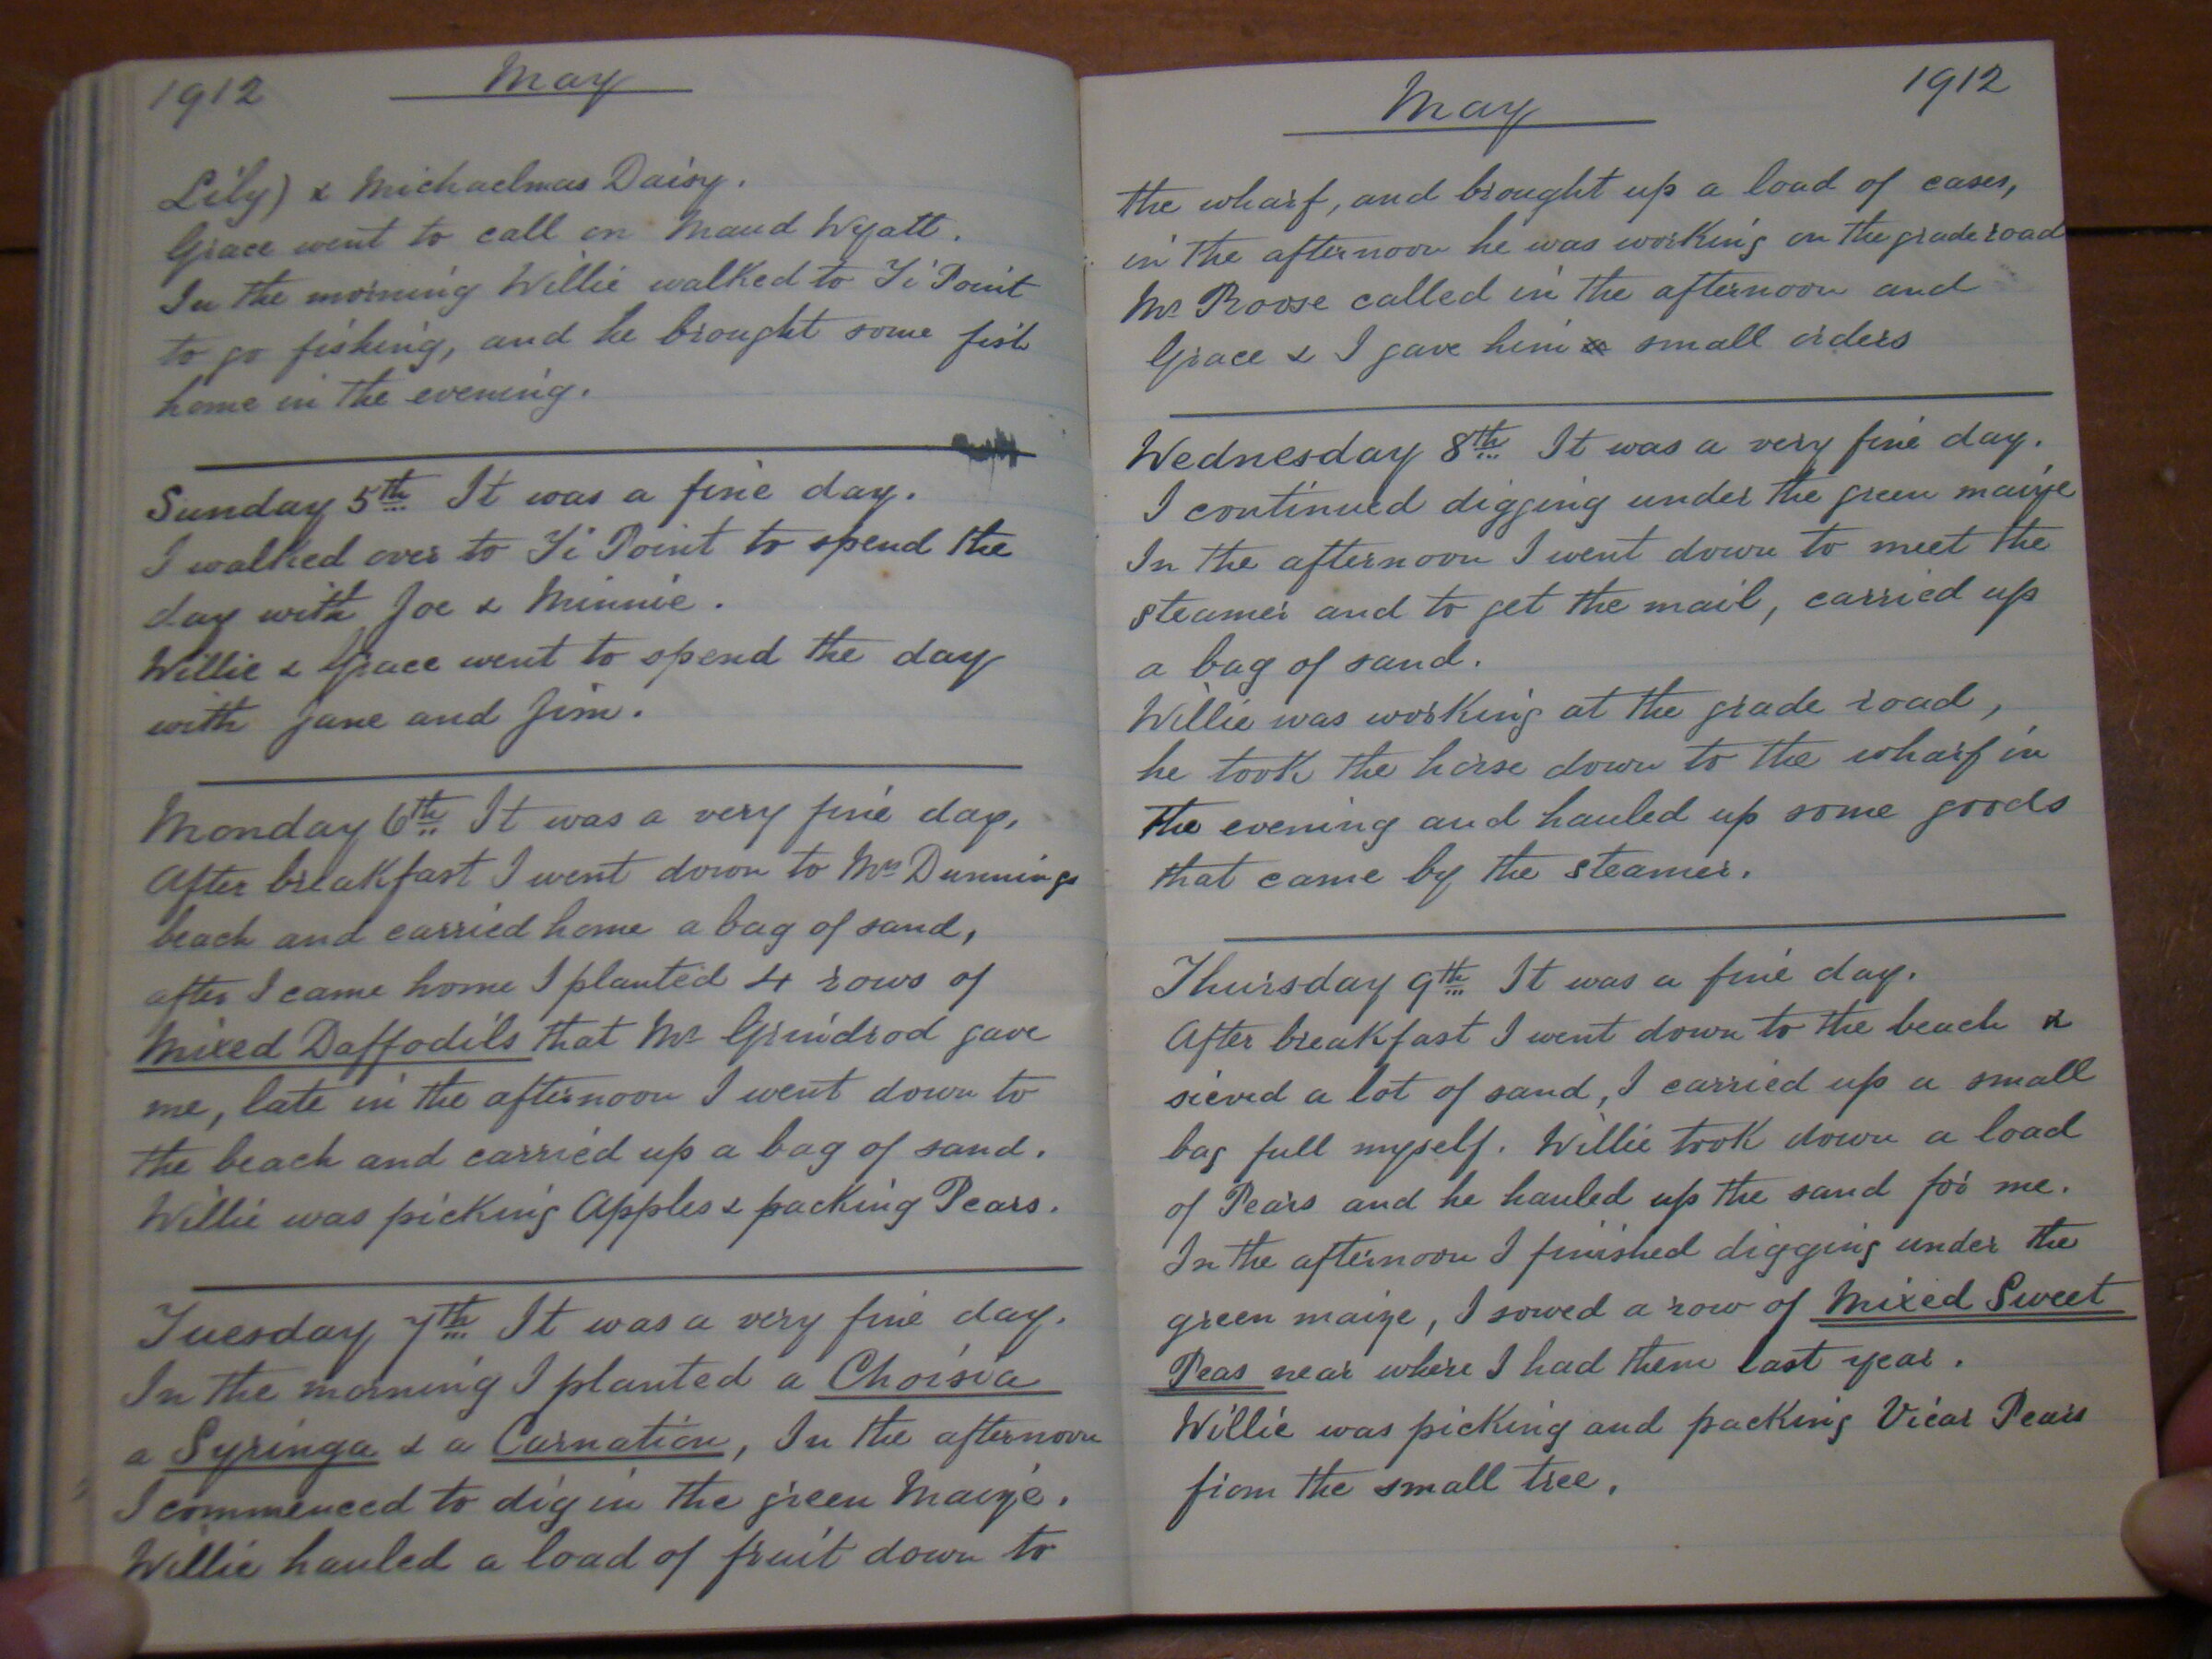 1912 May
Lily) & Michaelmas Daisy.
Grace went to call on Maud Wyatt.
In the morning Willie walked to Ti Point
to go fishing, and he brought some fish
home in the evening.
Sunday 5th It was a fine day.
I walked over to Ti Point to spend the
day with Joe & Minnie.
Willie & Grace went to spend the day
with Jane and Jim.
Monday 6th It was a very fine day,
After breakfast I went down to Mrs Dunnings
beach and carried home a bag of sand,
after I came home I planted 4 rows of
Mixed Daffodils that Mr Grindrod gave
me, late in the afternoon I went down to
the beach and carried up a bag of sand.
Willie was picking Apples & packing Pears.
Tuesday 7th It was a very fine day.
In the morning I planted a Choisia
a Syringa & a Carnation, In the afternoon
I commenced to dig in the green Maize.
Willie hauled a load of fruit down to
May 1912
the wharf, and brought up a load of cases,
in the afternoon he was working on the grade road
Mr Roose called in the afternoon and
Grace & I gave him small orders
Wednesday 8th It was a very fine day.
I continued digging under the green maize
In the afternoon I went down to meet the
steamer and to get the mail, carried up
a bag of sand.
Willie was working at the grade road,
he took the horse down to the wharf in
the evening and hauled up some goods
that came by the steamer.
Thursday 9th It was a fine day.
After breakfast I went down to the beach &
sieved a lot of sand, I carried up a small
bag full myself. Willie took down a load
of Pears and he hauled up the sand for me.
In the afternoon I finished digging under the
green maize, I sowed a row of Mixed Sweet
Peas near where I had them last year.
Willie was picking and packing Vicar Pears
from the small tree.